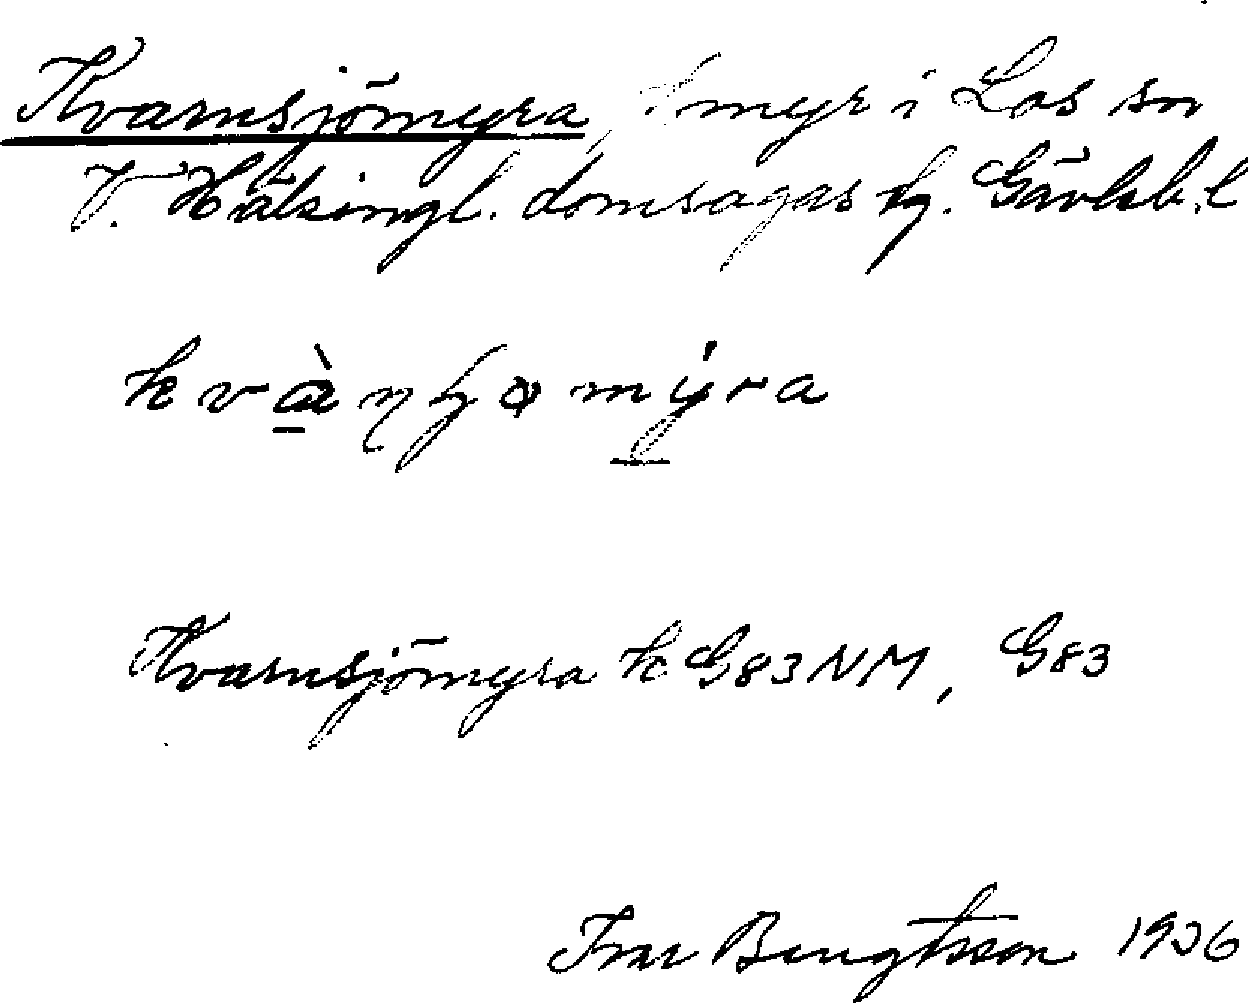 Kvarnsjömyra, myr i Los sn
V. Hälsingl. domsagas tg. Gävleb. l
Kvarnsjömyra k G83NM, G83
Ivar Bengtsson 1936